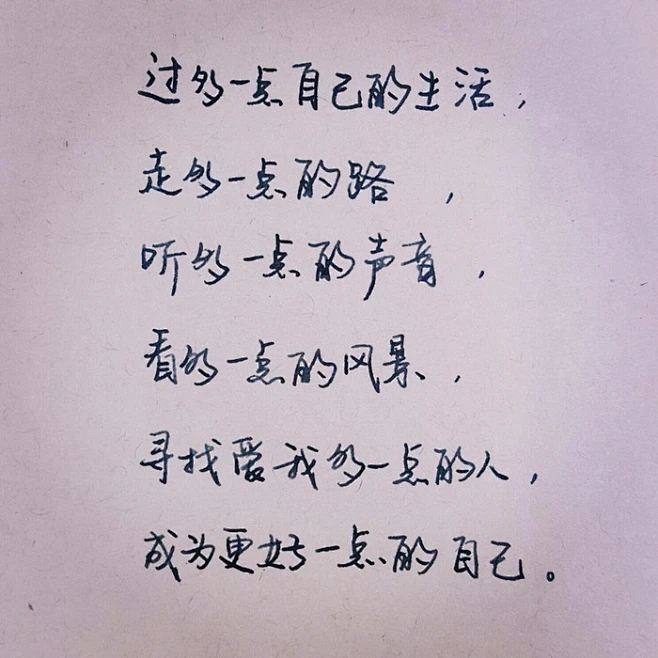 过多一点自己的生活，
走多一点的路，
听多一点的声音，
看多一点的风景，
寻找爱我多一点的人，
成为更好一点的自己。